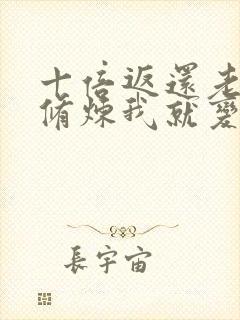 十倍返還老
脩煉我就變
長宇宙